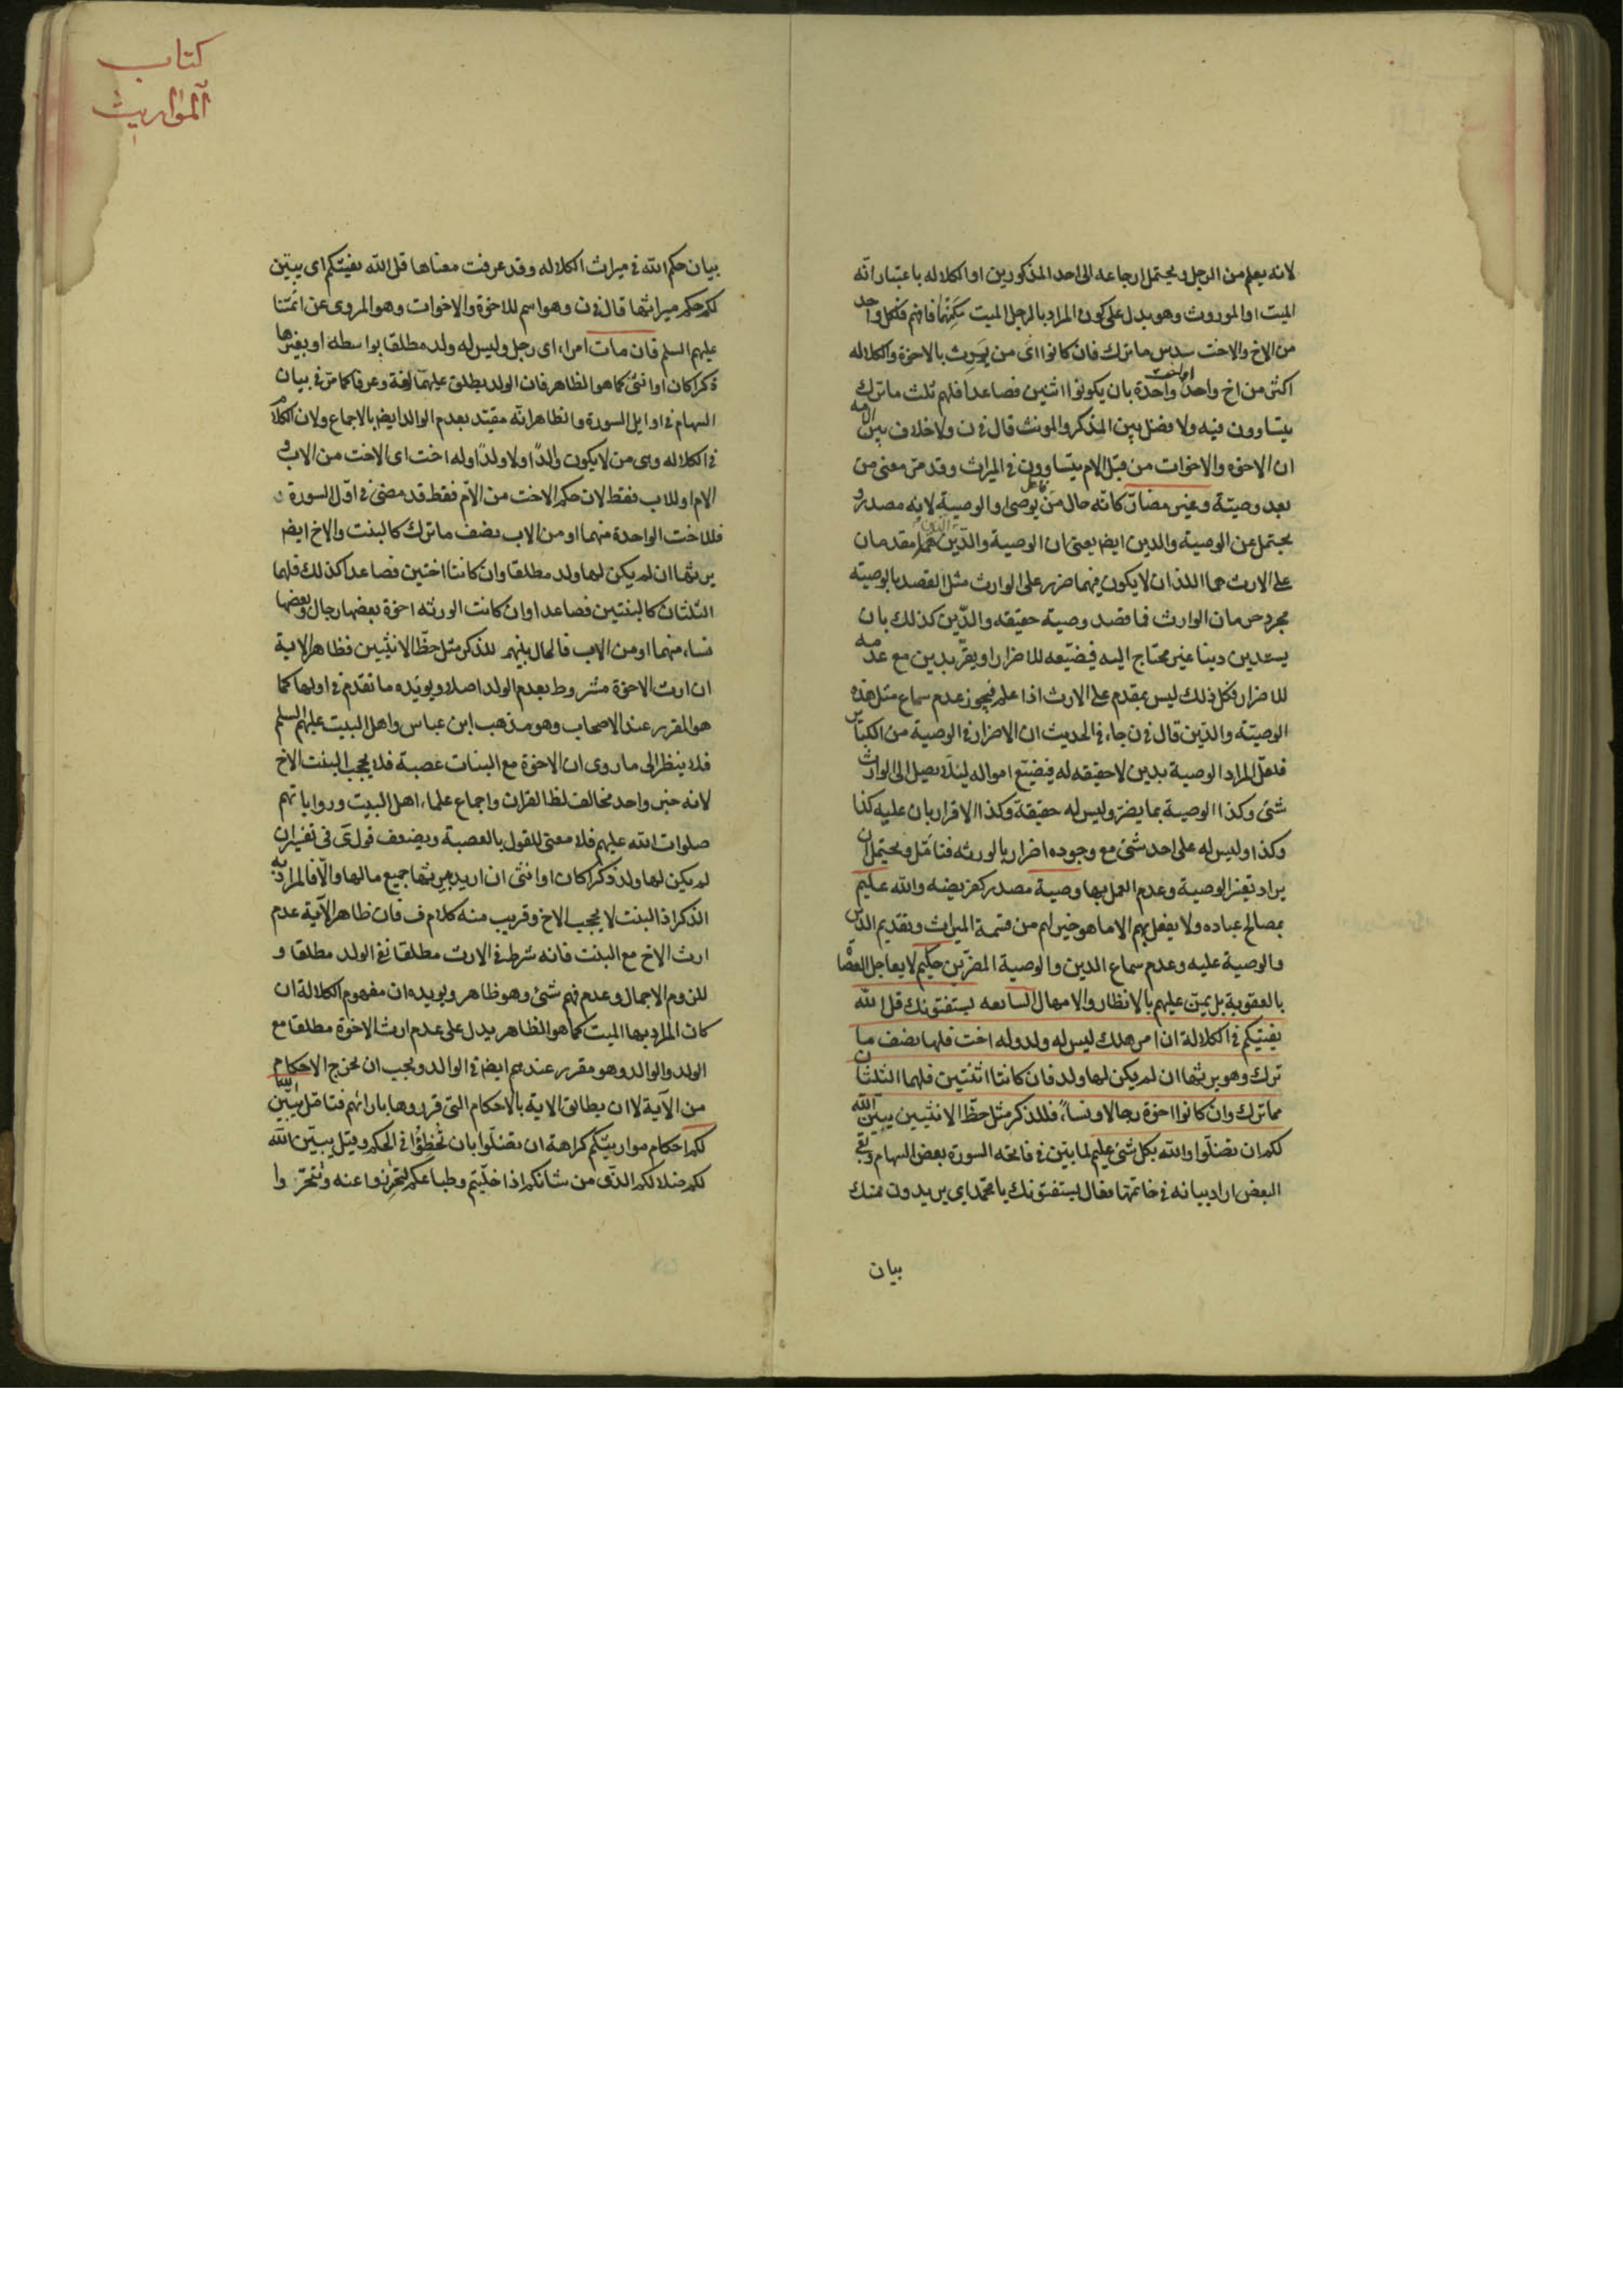 لانه يعلم من الرجل ويحتمل ارجاعه الى احد المذكورين او الكلاله باعتبار انّه
الميت او الموروث وهو يدل على كون المراد بالرجل الميت فافهم فلكل واحد
من الاخ والاخت سدس ما ترك فان كانوا اى من يورث بالاخوة والكلاله
اكثر من اخ واحد او اخت واحدة بان يكونوا اثنين فصاعدا فلهم ثلث ما ترك
يتساوون فيه ولا فضل بين المذكر والمونث قال فى ن ولا خلاف بين الامه
ان الاخوه والاخوات من قبل الام يتساوون فى الميراث وقد مرّ معنى من
بعد وصيّة وغير مضارّ كانّه حال من فاعل يوصى او الوصية لانه مصدر و
يحتمل عن الوصية والدين ايض يعنى ان الوصية والدّين الذين هما مقدمان
على الارث هما اللذان لا يكون فيهما ضرر على الوارث مثل القصد بالوصية
مجرد حرمان الوارث فا قصد وصية حقيقه والدّين كذلك بان
يستدين دينا غير محتاج اليه فيضيّعه للاضرار او يقرّ بدين مع عدمه
للاضرار فكل ذلك ليس بمقدم على الارث اذا علم فيجوز عدم سماع مثل هذه
الوصيّة والدّين قال فى ن جاء فى الحديث ان الاضرار فى الوصية من الكباير
فلعلّ المراد الوصية بدين لا حقيقه له فيضيّع امواله ليلا يصل الى الوارث
شئ وكذا الوصية بما يضرّ وليس له حقيقة وكذا الاقرار بان عليه كذا
وكذا وليس له على احد شئ مع وجوده اضرارا بالورثه فتامّل ويحتمل ان
يراد تغير الوصية وعدم العمل بها وصية مصدر كفريضه والله عليم
بمصالح عباده ولا يفعل بهم الا ما هو خير لهم من قسمة الميراث وتقديم الدين
والوصية عليه وعدم سماع الدين والوصية المضرّين حكيم لا يعاجل العصاة
بالعقوبة بل يمنّ عليهم بالانظار والامهال السابعه يستفتونك قل الله
يفتيكم فى الكلالة ان امرء هلك ليس له ولد وله اخت فلها نصف ما
ترك وهو يرثها ان لم يكن لها ولد فان كانتا اثنتين فلهما الثلثان
مما ترك وان كانوا اخوة رجالا ونساء فللذكر مثل حظّ الانثيين يبيّن الله
لكم ان تضلّوا والله بكل شئ عليم لما بيّن فى فاتحه السورة بعض السهام وبقى
البعض اراد بيانه فى خاتمتها فقال يستفتونك يا محمّد اى يريدون منك
بيان
كتاب
المواريث
بيان حكم الله فى ميراث الكلاله وقد عرفت معناها قل الله يفتيكم اى يبيّن
لكم حكم ميراثها قال فى ن وهو اسم للاخوة والاخوات وهو المروى عن ائمّتنا
عليهم السلم فان مات امراء اى رجل وليس له ولد مطلقا بواسطه او بغيرها
ذكرا كان او انثى كما هو الظاهر فان الولد يطلق عليهما لغة وعرفا كما مرّ فى بيان
السهام فى اوايل السورة والظاهر انّه مقيّد بعدم الوالد ايض بالاجماع ولان الكلام
فى الكلاله وهى من لا يكون والدًا ولا ولدًا وله اخت اى الاخت من الاب و
الام او للاب فقط لان حكم الاخت من الامّ فقط قد مضى فى اوّل السورة
فللاخت الواحدة منهما او من الاب نصف ما ترك كالبنت والاخ ايض
يرثها ان لم يكن لها ولد مطلقا وان كانتا اختين فصاعدا كذلك فلهما
الثلثان كالبنتين فصاعدا وان كانت الورثه اخوة بعضها رجال وبعضها
نساء منهما او من الاب فالمال بينهم للذكر مثل حظّ الانثيين فظاهر الاية
ان ارث الاخوة مشروط بعدم الولد اصلا ويويّده ما تقدّم فى اولها كما
هو المقرر عند الاصحاب وهو مذهب ابن عباس واهل البيت عليهم السلم
فلا ينظر الى ما روى ان الاخوة مع البنات عصبة فلا يحجب البنت الاخ
لانه خبر واحد مخالف لظ القران واجماع علماء اهل البيت ورواياتهم
صلوات الله عليهم فلا معنى للقول بالعصبة ويضعف قول ى فى تفسير ان
لم يكن لها ولد ذكرا كان او انثى ان اريد بيرثها جميع مالها والّا فالمراد به
الذكر اذ البنت لا يحجب الاخ وقريب منه كلام ف فان ظاهر الآية عدم
ارث الاخ مع البنت فانه شرط فى الارث مطلقا نفى الولد مطلقا و
للزوم الاجمال وعدم فهم شئ وهو ظاهر ويويده ان مفهوم الكلالة ان
كان المراد بها الميت كما هو الظاهر يدل على عدم ارث الاخوة مطلقا مع
الولد والوالد وهو مقرر عندهم ايض فى الوالد ويجب ان يخرج الاحكام
من الآية لا ان يطابق الاية بالاحكام التى قرروها بارائهم فتامّل يبيّن الله
لكم احكام مواريثكم كراهة ان تضلّوا بان تخطؤا فى الحكم وقيل يبيّن الله
لكم ضلالكم الذى من شانكم اذا خلّيتم وطباعكم لتحترزوا عنه وتتحرّوا